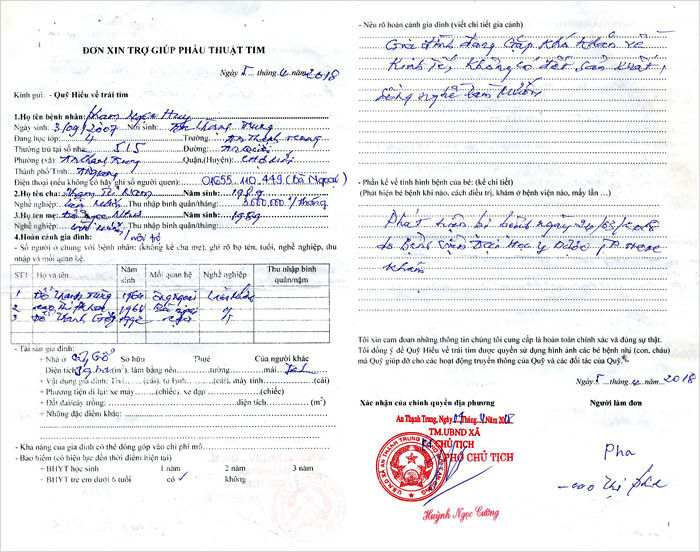 ĐƠN XIN TRỢ GIÚP PHẪU THUẬT TIM
Ngày 5 tháng 4 năm 2018
Kính gửi: - Quỹ Hiểu về trái tim
1.Họ tên bệnh nhân: Phạm Ngọc Huy
Ngày sinh: 3/09/2007 Nơi sinh: An Thạnh Trung
Đang học lớp: 4 Trường: An Thạnh Trung
Thường trú tại số nhà: 515 Đường:
Phường (xã): An Thạnh Trung Quận,(Huyện): Chợ Mới
Thành phố/Tỉnh: An Giang
Điện thoại (nếu không có hãy ghi số người quen): (Bà Ngoại)
2.Họ tên cha: Năm sinh: 1989
Nghề nghiệp: Làm mướn Thu nhập bình quân/tháng: 3.000.000đ/tháng
3.Họ tên mẹ: Năm sinh: 1989
Nghề nghiệp: Thu nhập bình quân/tháng:
4.Hoàn cảnh gia đình:
- Số người ở chung với bệnh nhân: (không kể cha mẹ), ghi rõ họ tên, tuổi, nghề nghiệp, thu
nhập và mối quan hệ.
STT Họ và tên Năm sinh Mối quan hệ Nghề nghiệp Thu nhập bình quân/năm
1 Đỗ Thanh 1964 Ông ngoại
2 Cao Thị 1966 Bà ngoại
3 Đỗ Thanh
- Tài sản gia đình:
+ Nhà ở Sở hữu Thuê Của người khác
Diện tích (m²), làm bằng nền tường mái
+ Vật dụng gia đình: Tivi (cái), tủ lạnh (cái), máy tính (cái)
+ Phương tiện đi lại: xe máy (chiếc), xe đạp (chiếc)
+ Đất đai/cây trồng: diện tích (m²)
+ Những đặc điểm khác:
- Khả năng của gia đình có thể đóng góp vào chi phí mổ
- Bảo hiểm (có hiệu lực đến thời điểm hiện tại)
+ BHYT học sinh 1 năm 2 năm 3 năm
+ BHYT trẻ em dưới 6 tuổi có không
- Nêu rõ hoàn cảnh gia đình (viết chi tiết gia cảnh)
Gia đình đang gặp khó khăn về
kinh tế, không có đất sản xuất,
sống nghề làm mướn
- Phần kể về tình hình bệnh của bé: (kể chi tiết)
(Phát hiện bệnh khi nào, cách điều trị, khám ở bệnh viện nào, mấy lần …)
Phát hiện bị bệnh ngày
do bệnh viện Đại học y dược TP.HCM
khám
Tôi xin cam đoan những thông tin chúng tôi cung cấp là hoàn toàn chính xác và đúng sự thật.
Tôi đồng ý để Quỹ Hiểu về trái tim được quyền sử dụng hình ảnh các bé bệnh nhi (con, cháu)
mà Quỹ giúp đỡ cho các hoạt động truyền thông của Quỹ và các đối tác của Quỹ.
Ngày 5 tháng 4 năm 2018
Xác nhận của chính quyền địa phương Người làm đơn
An Thạnh Trung, Ngày 09 tháng 4 Năm 2018
TM.UBND XÃ
CHỦ TỊCH
PHÓ CHỦ TỊCH
Huỳnh Ngọc Cường
Pha
Cao Thị Pha